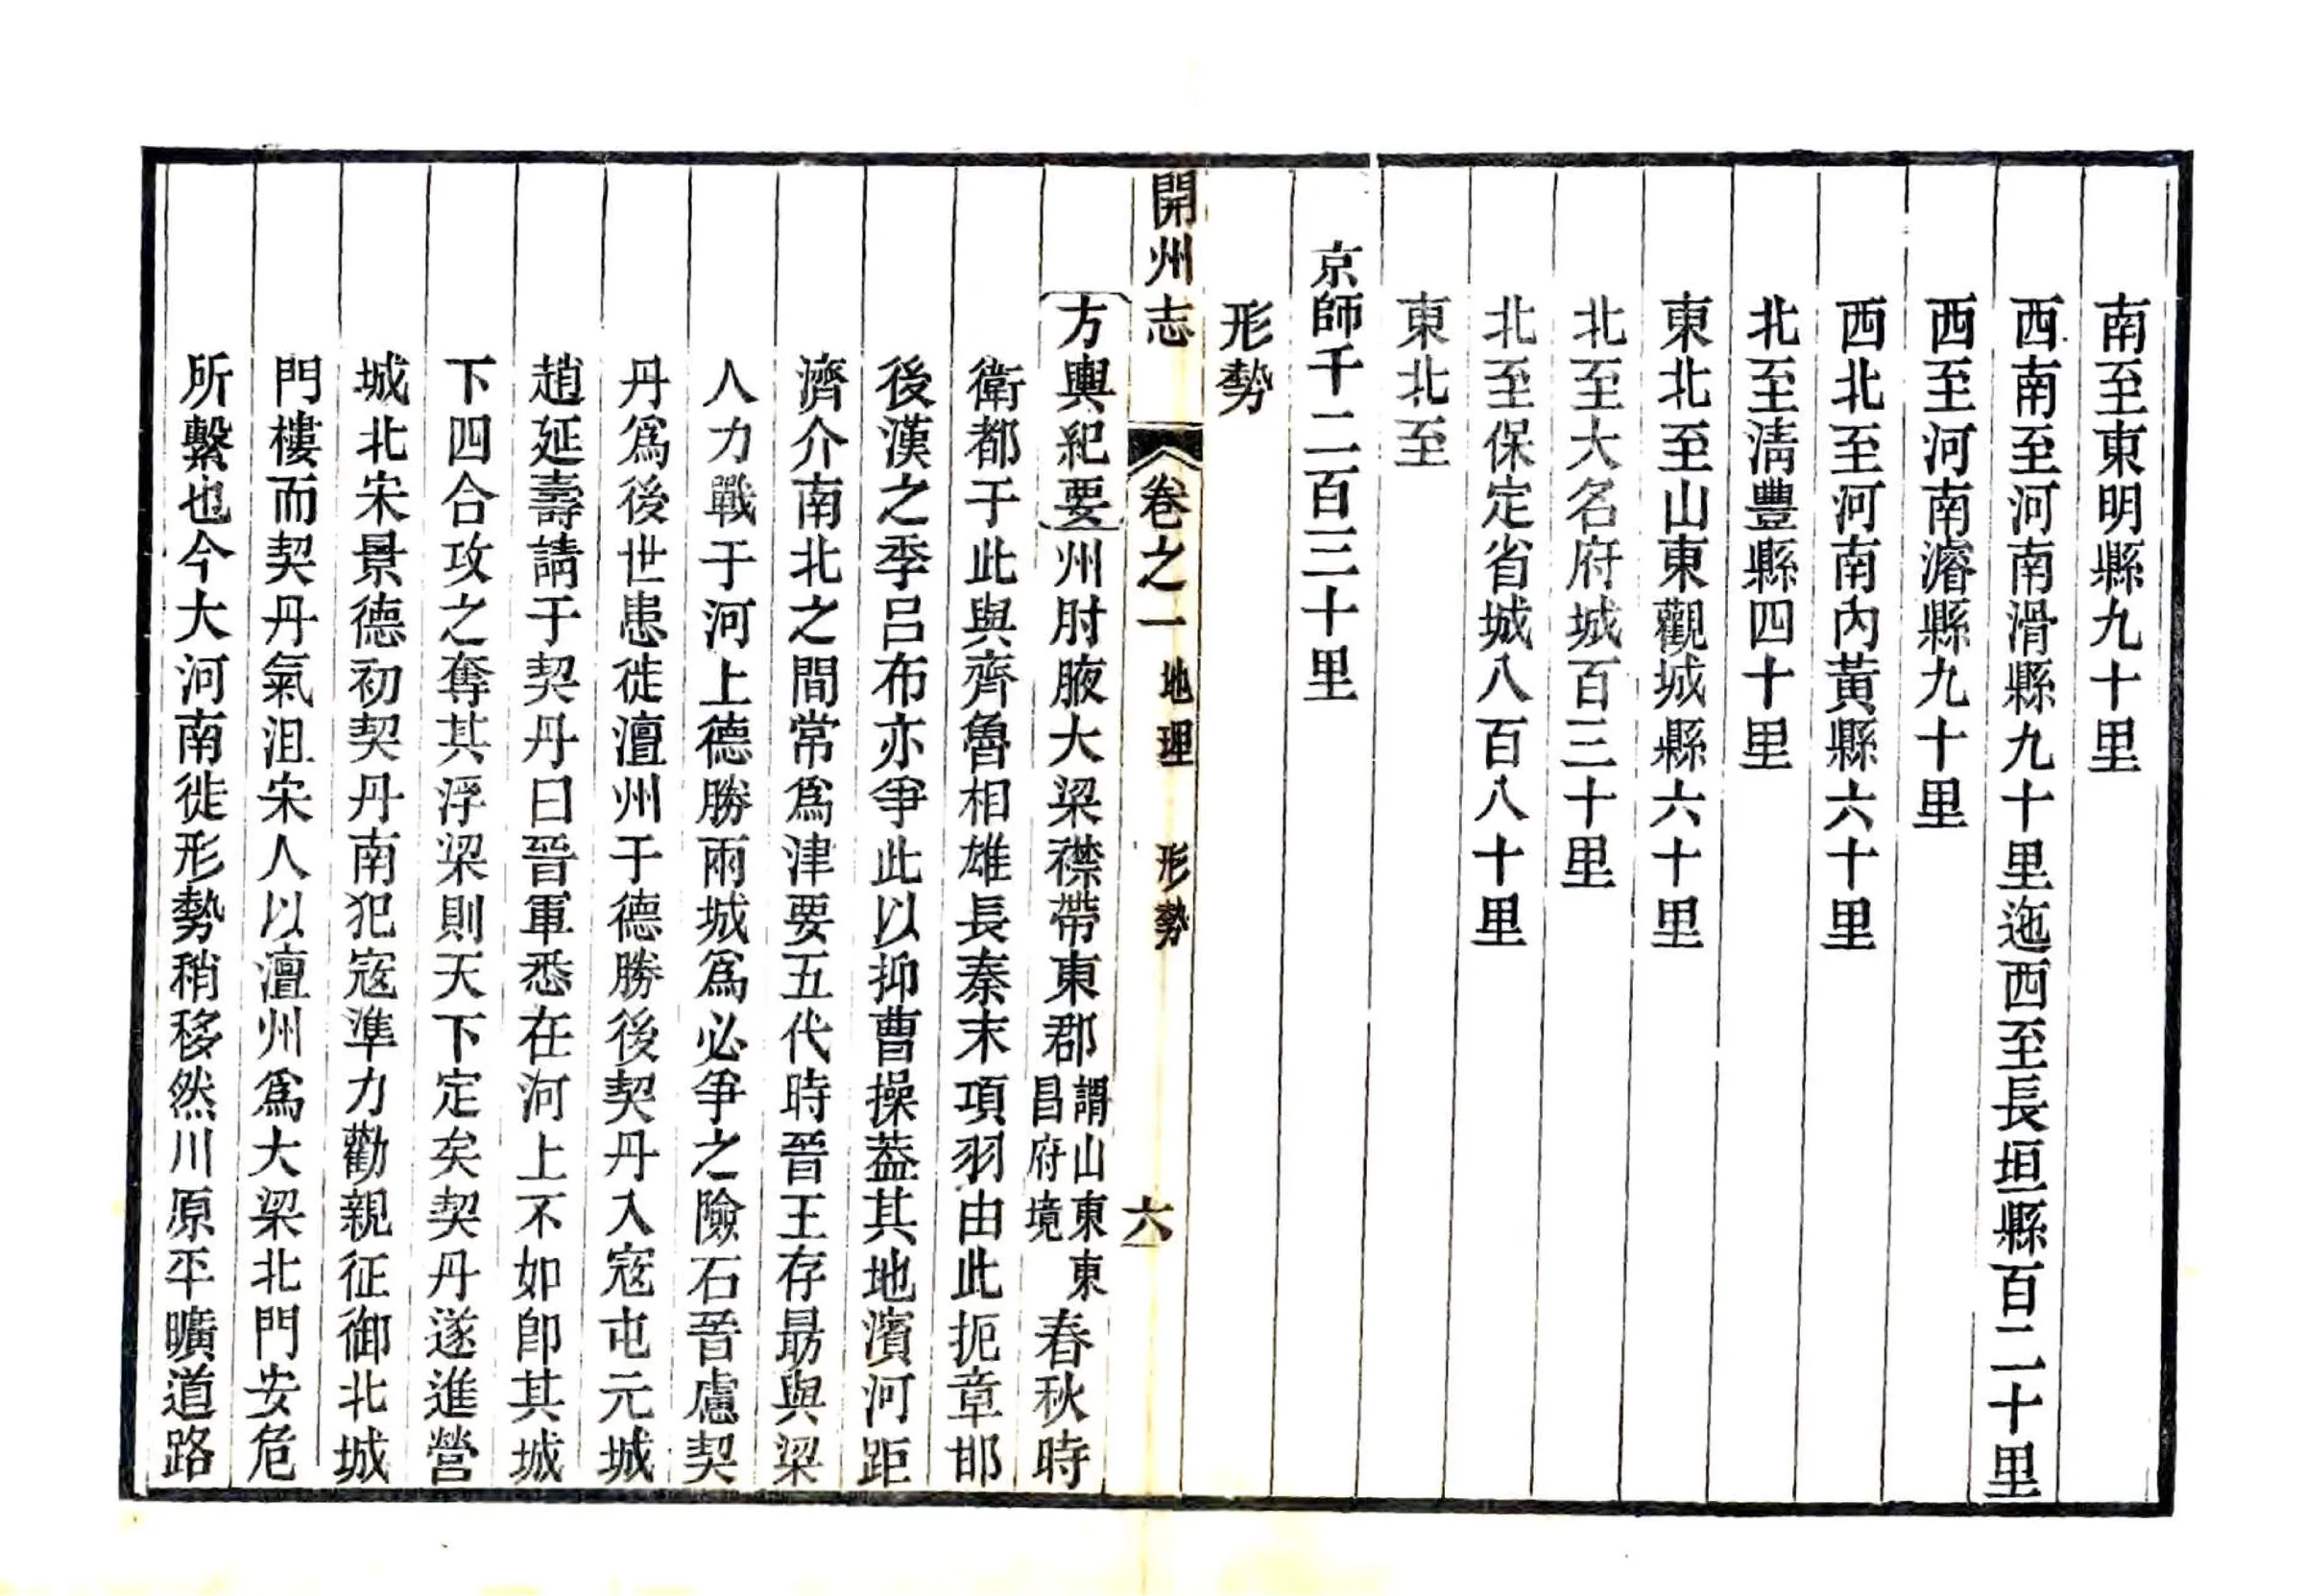 南至東明縣九十里
西南至河南滑縣九十里迤西至長垣縣百二十里
西至河南濬縣九十里
西北至河南內黃縣六十里
北至淸豐縣四十里
東北至山東觀城縣六十里
北至大名府城百三十里
北至保定省城八百八十里
東北至
京師千二百三十里
形勢
開州志 卷之一 地理 形勢 六
方輿紀要州肘腋大梁襟帶東郡謂山東東昌府境春秋時
衛都于此與齊魯相雄長秦末項羽由此扼章邯
後漢之季呂布亦爭此以抑曹操葢其地濱河距
濟介南北之間常爲津要五代時晉王存勗與梁
人力戰于河上德勝兩城爲必爭之險石晉慮契
丹爲後世患徙澶州于德勝後契丹入寇屯元城
趙延壽請于契丹曰晉軍悉在河上不如卽其城
下四合攻之奪其浮梁則天下定矣契丹遂進營
城北宋景德初契丹南犯寇準力勸親征御北城
門樓而契丹氣沮宋人以澶州爲大梁北門安危
所繫也今大河南徙形勢稍移然川原平曠道路